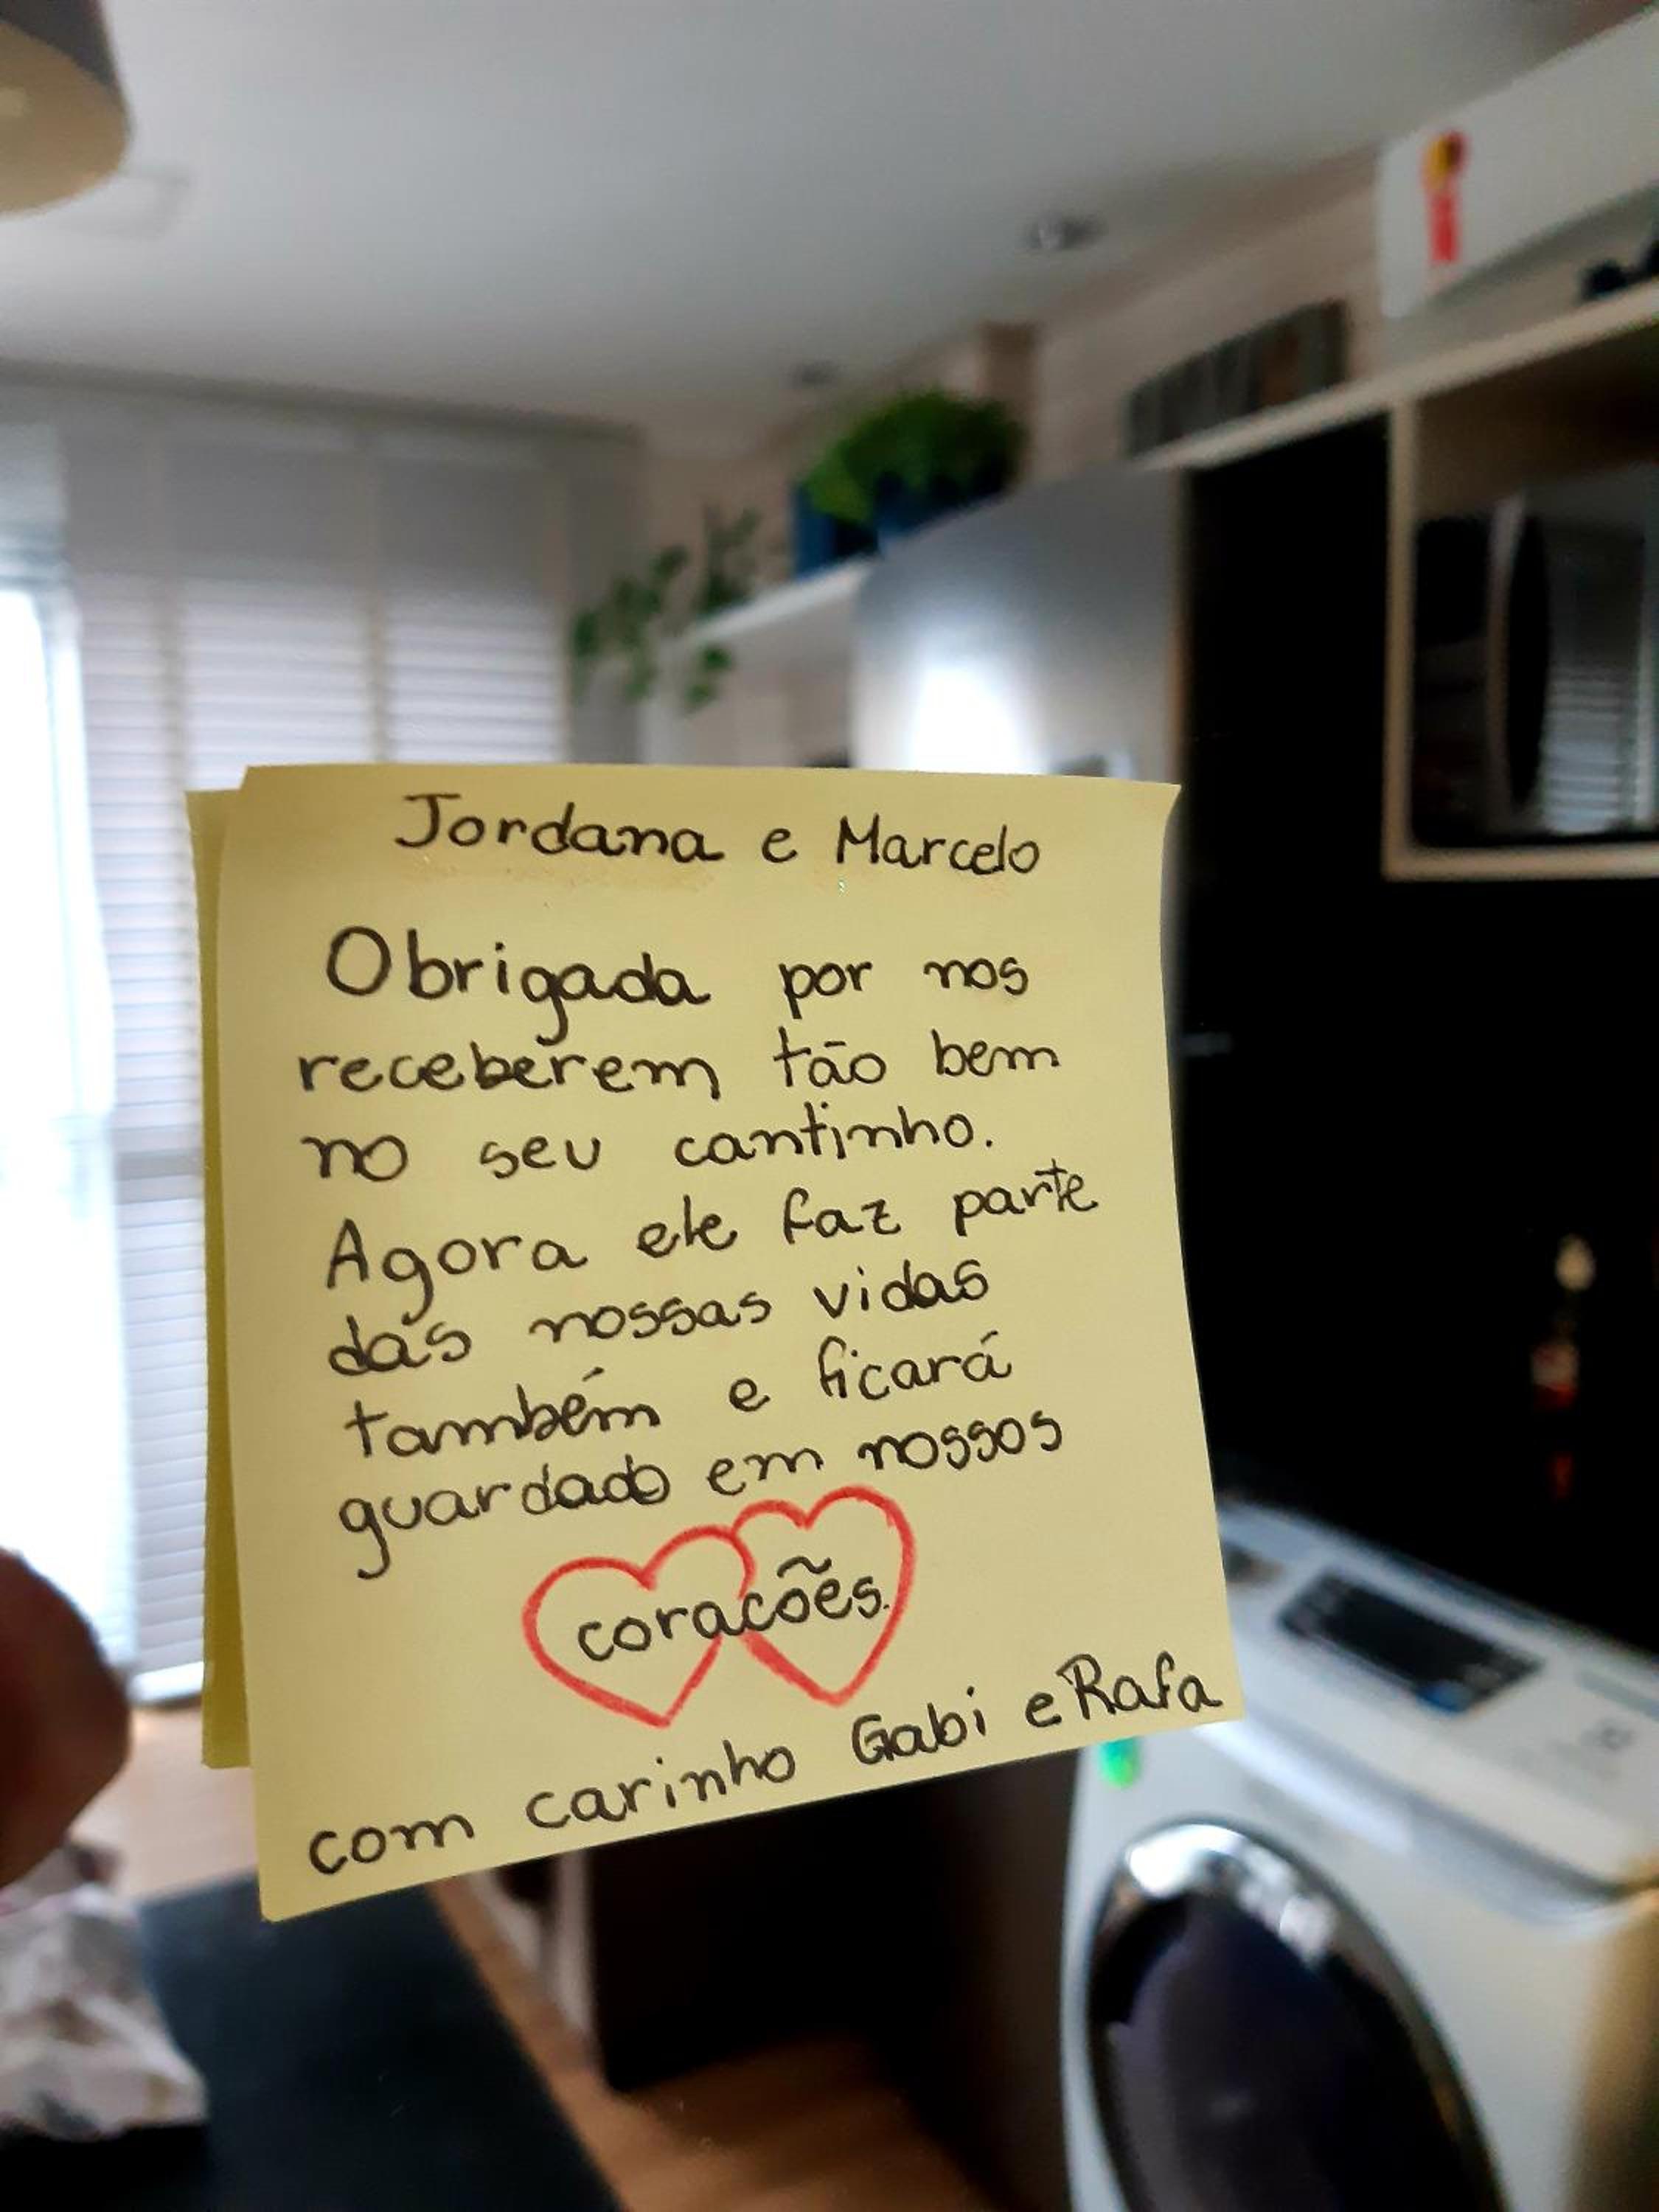 Jordana e Marcelo
Obrigada por nos
receberem tão bem
no seu cantinho.
Agora ele faz parte
das nossas vidas
também e ficará
guardado em nossos
coracões.
com carinho Gabi e Rafa